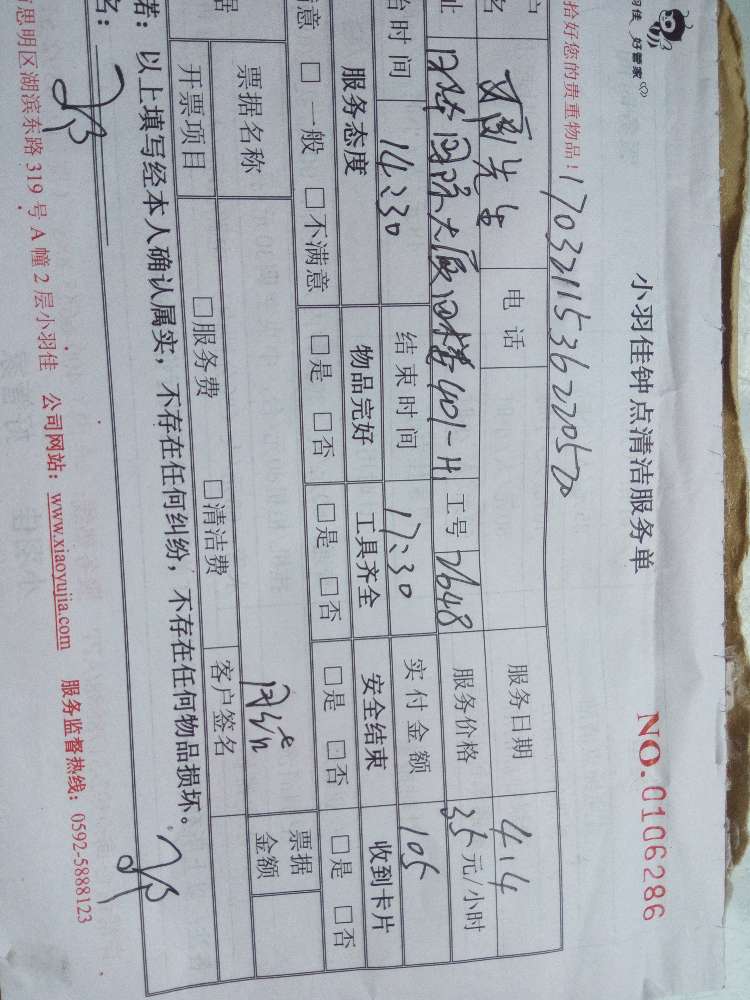 羽佳 好管家
小羽佳钟点清洁服务单
NO.0106286
拾好您的贵重物品！
17032115362205 20
户
名
先生
电话
服务日期
4.14
址
国际大厦
楼401-H
工号
2648
服务价格
35元/小时
始时间
14:30
结束时间
17:30
实付金额
105
服务态度
物品完好
工具齐全
安全结束
收到卡片
意 □一般 □不满意
□是 □否
□是 □否
□是 □否
□是 □否
据
票据名称
票据金额
开票项目
□服务费 □清洁费
客户签名
诺：以上填写经本人确认属实，不存在任何纠纷，不存在任何物品损坏。
名：
思明区湖滨东路 319 号 A 幢 2 层小羽佳 公司网站：www.xiaoyujia.com 服务监督热线：0592-5888123